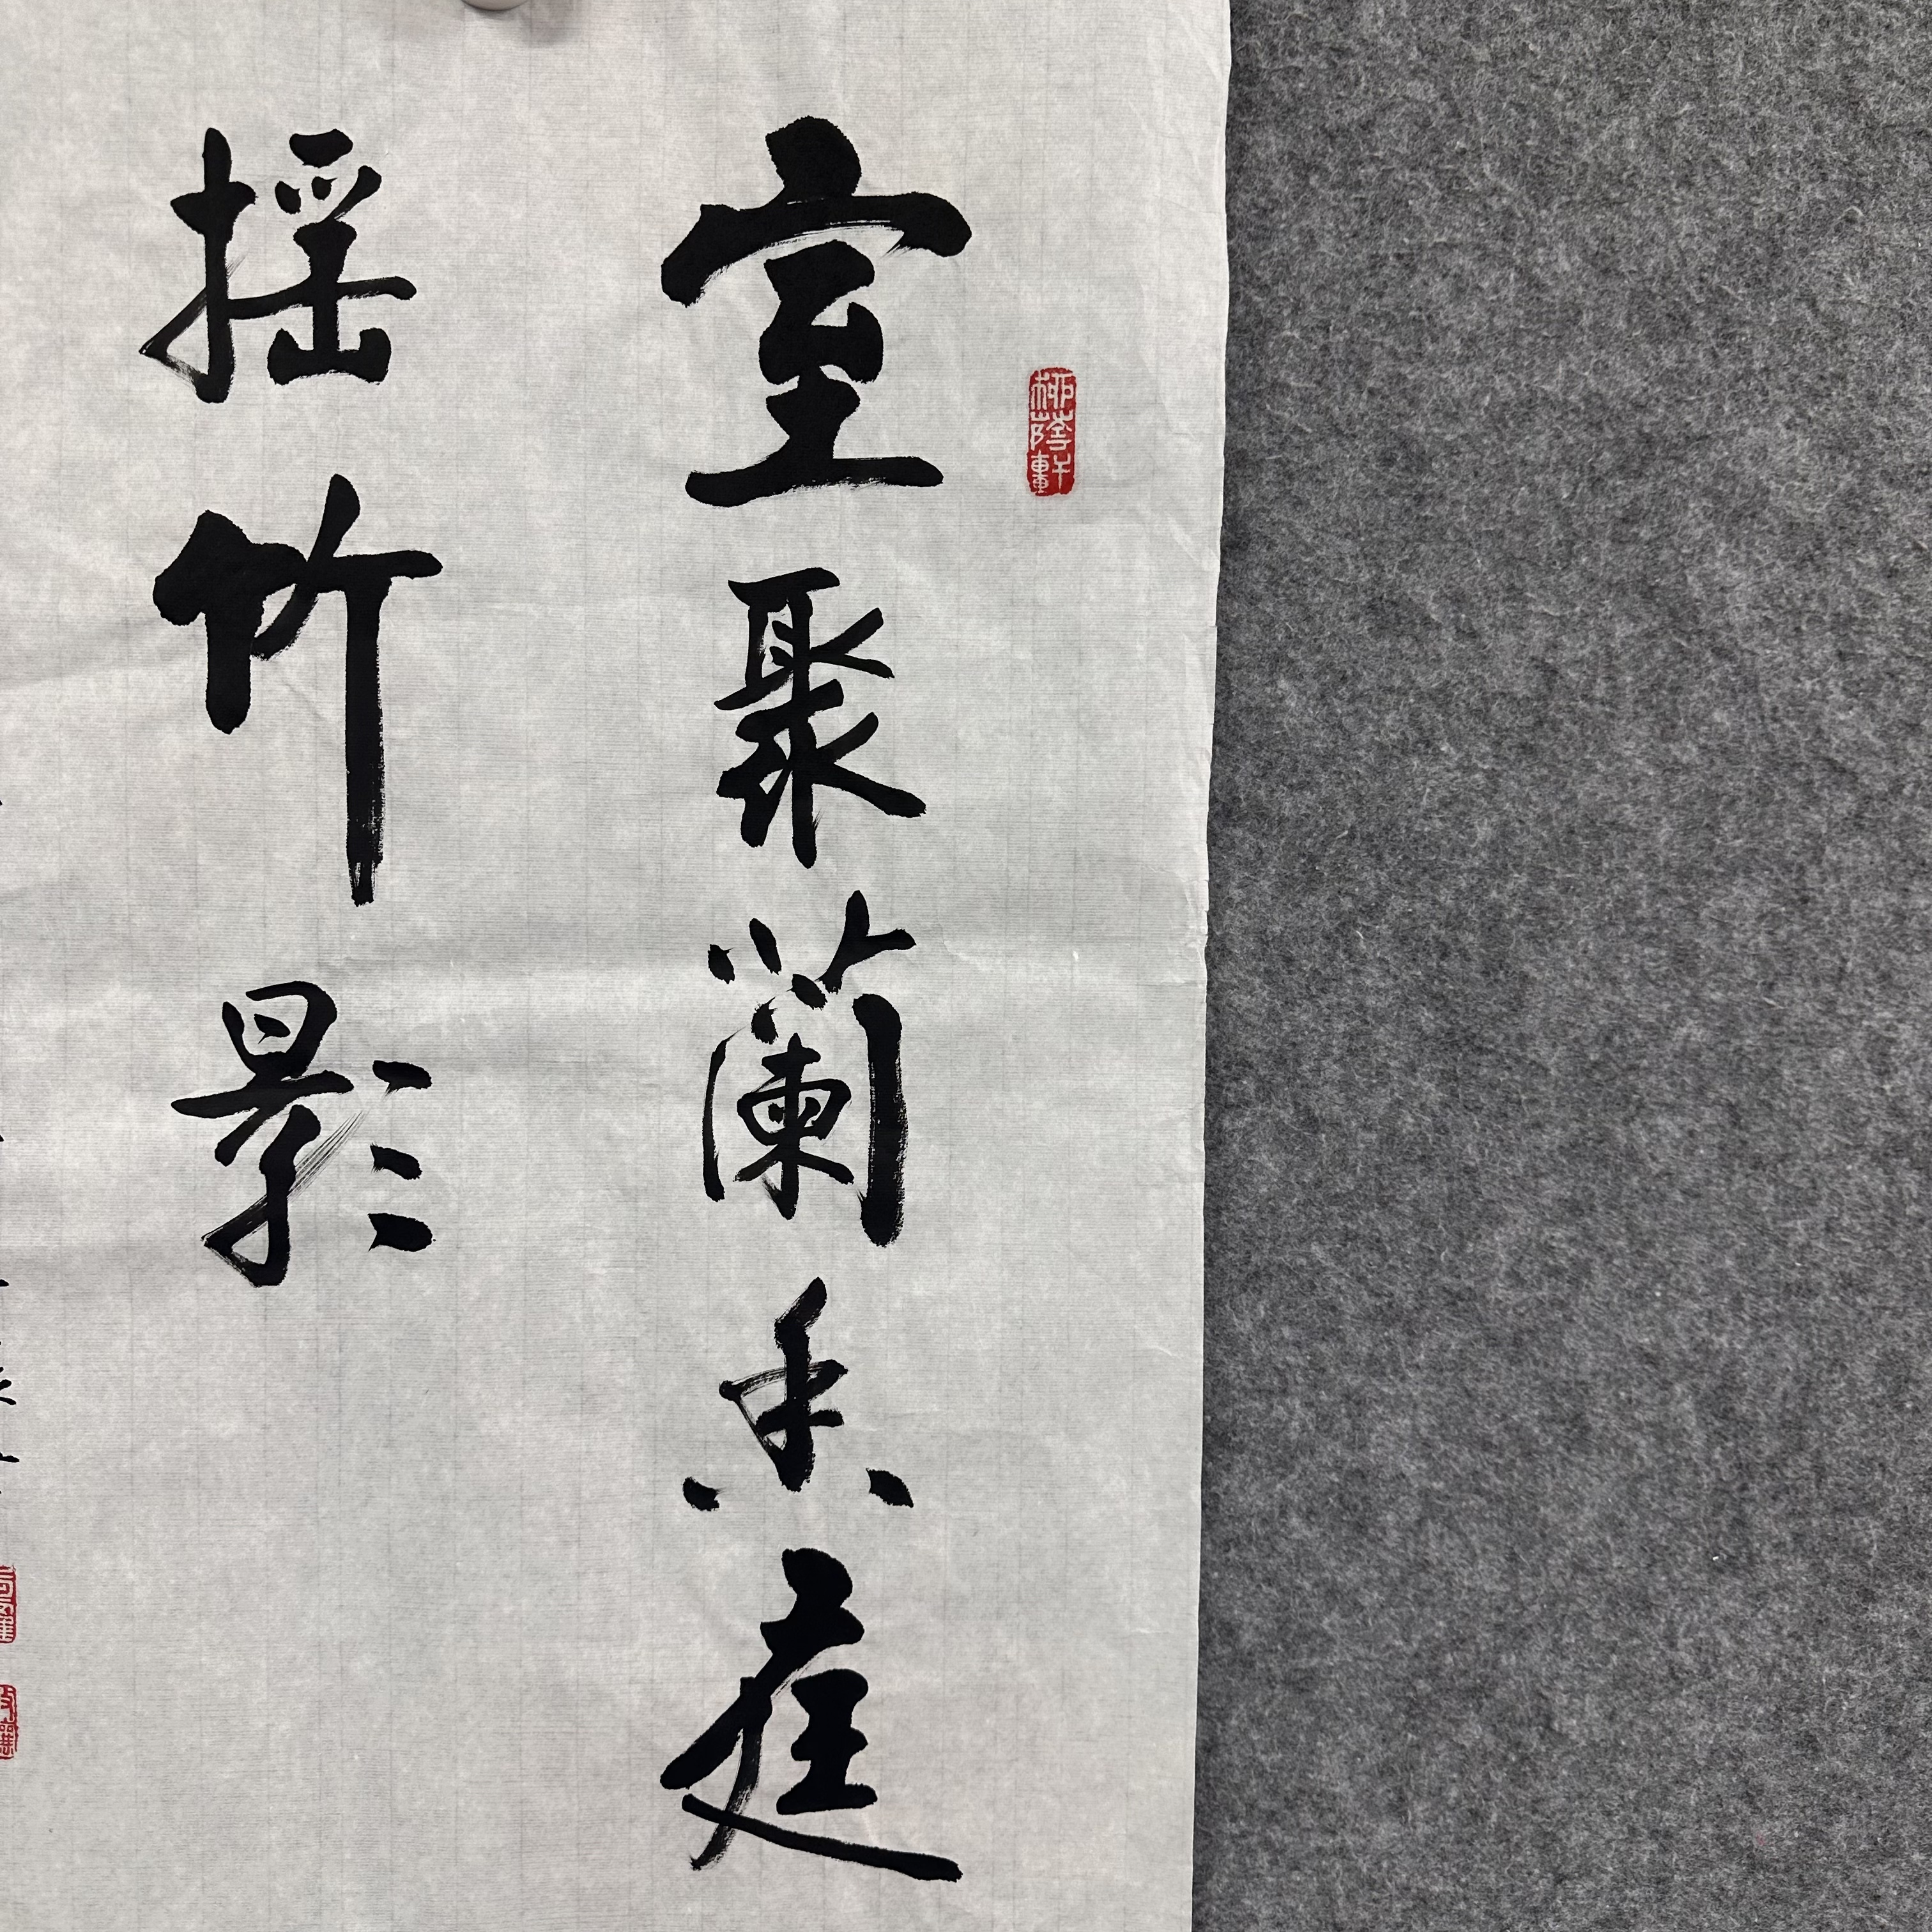 室聚蘭香庭
摇竹影
柳蔭軒